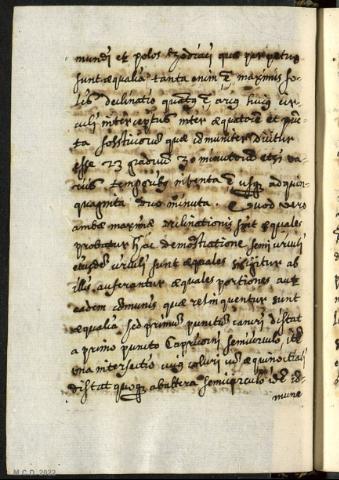 mundi et polos Zodiaci quæ perpetuo
sunt æqualia tanta enim ē maximus so-
lis declinatio quantq ē arcq huiq cir-
culi interceptus inter æquatore et pūc-
ta solstitioruȝ quæ cōmuniter dicitur
esse 23 graduuȝ 30 minutoruȝ etsi va-
riis temporibq inventa ē usqȝ ad quin-
quaginta duo minuta. Quod vero
ambæ maximæ declinationis sint æquales
probatur hac demōstratione semicirculi
eiusdē circuli sunt æquales igitur ab
illis auferantur æquales portiones aut
eadem cōmunis quæ relinquentur sunt
æqualia sed primuȝ punctū cancri distat
a primo puncto Capricorni semicirculo, itē
una intersectio cuiq coluri æquinoctiali
distat quoqȝ ab altera semicirculo
mune
M.C.D. 2022